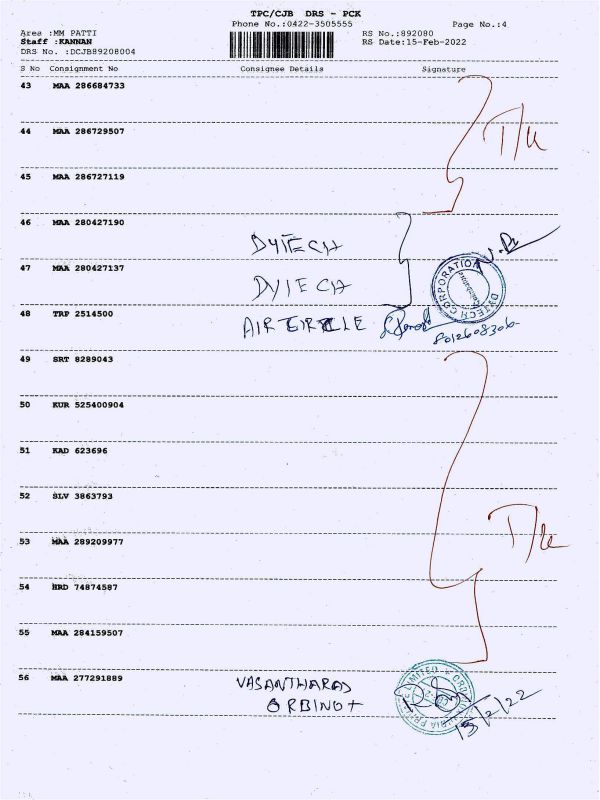 TPC/CJB DRS - PCK
Phone No.:0422-3505555
Page No.:4
Area :MM PATTI
RS No.:892080
Staff :KANNAN
RS Date:15-Feb-2022
DRS No. :DCJB89208004
S No Consignment No Consignee Details Signature
43 MAA 286684733
44 MAA 286729507
45 MAA 286727119
46 MAA 280427190
DYTECH
47 MAA 280427137
DYTECH
DYTECH CORPORATION
Coimbatore
48 TRP 2514500
AIR
8012608306
49 SRT 8289043
50 KUR 525400904
51 KAD 623696
52 SLV 3863793
53 MAA 289209977
54 HRD 74874587
55 MAA 284159507
56 MAA 277291889
VASANTHARAJ
LIMITED
15/2/22